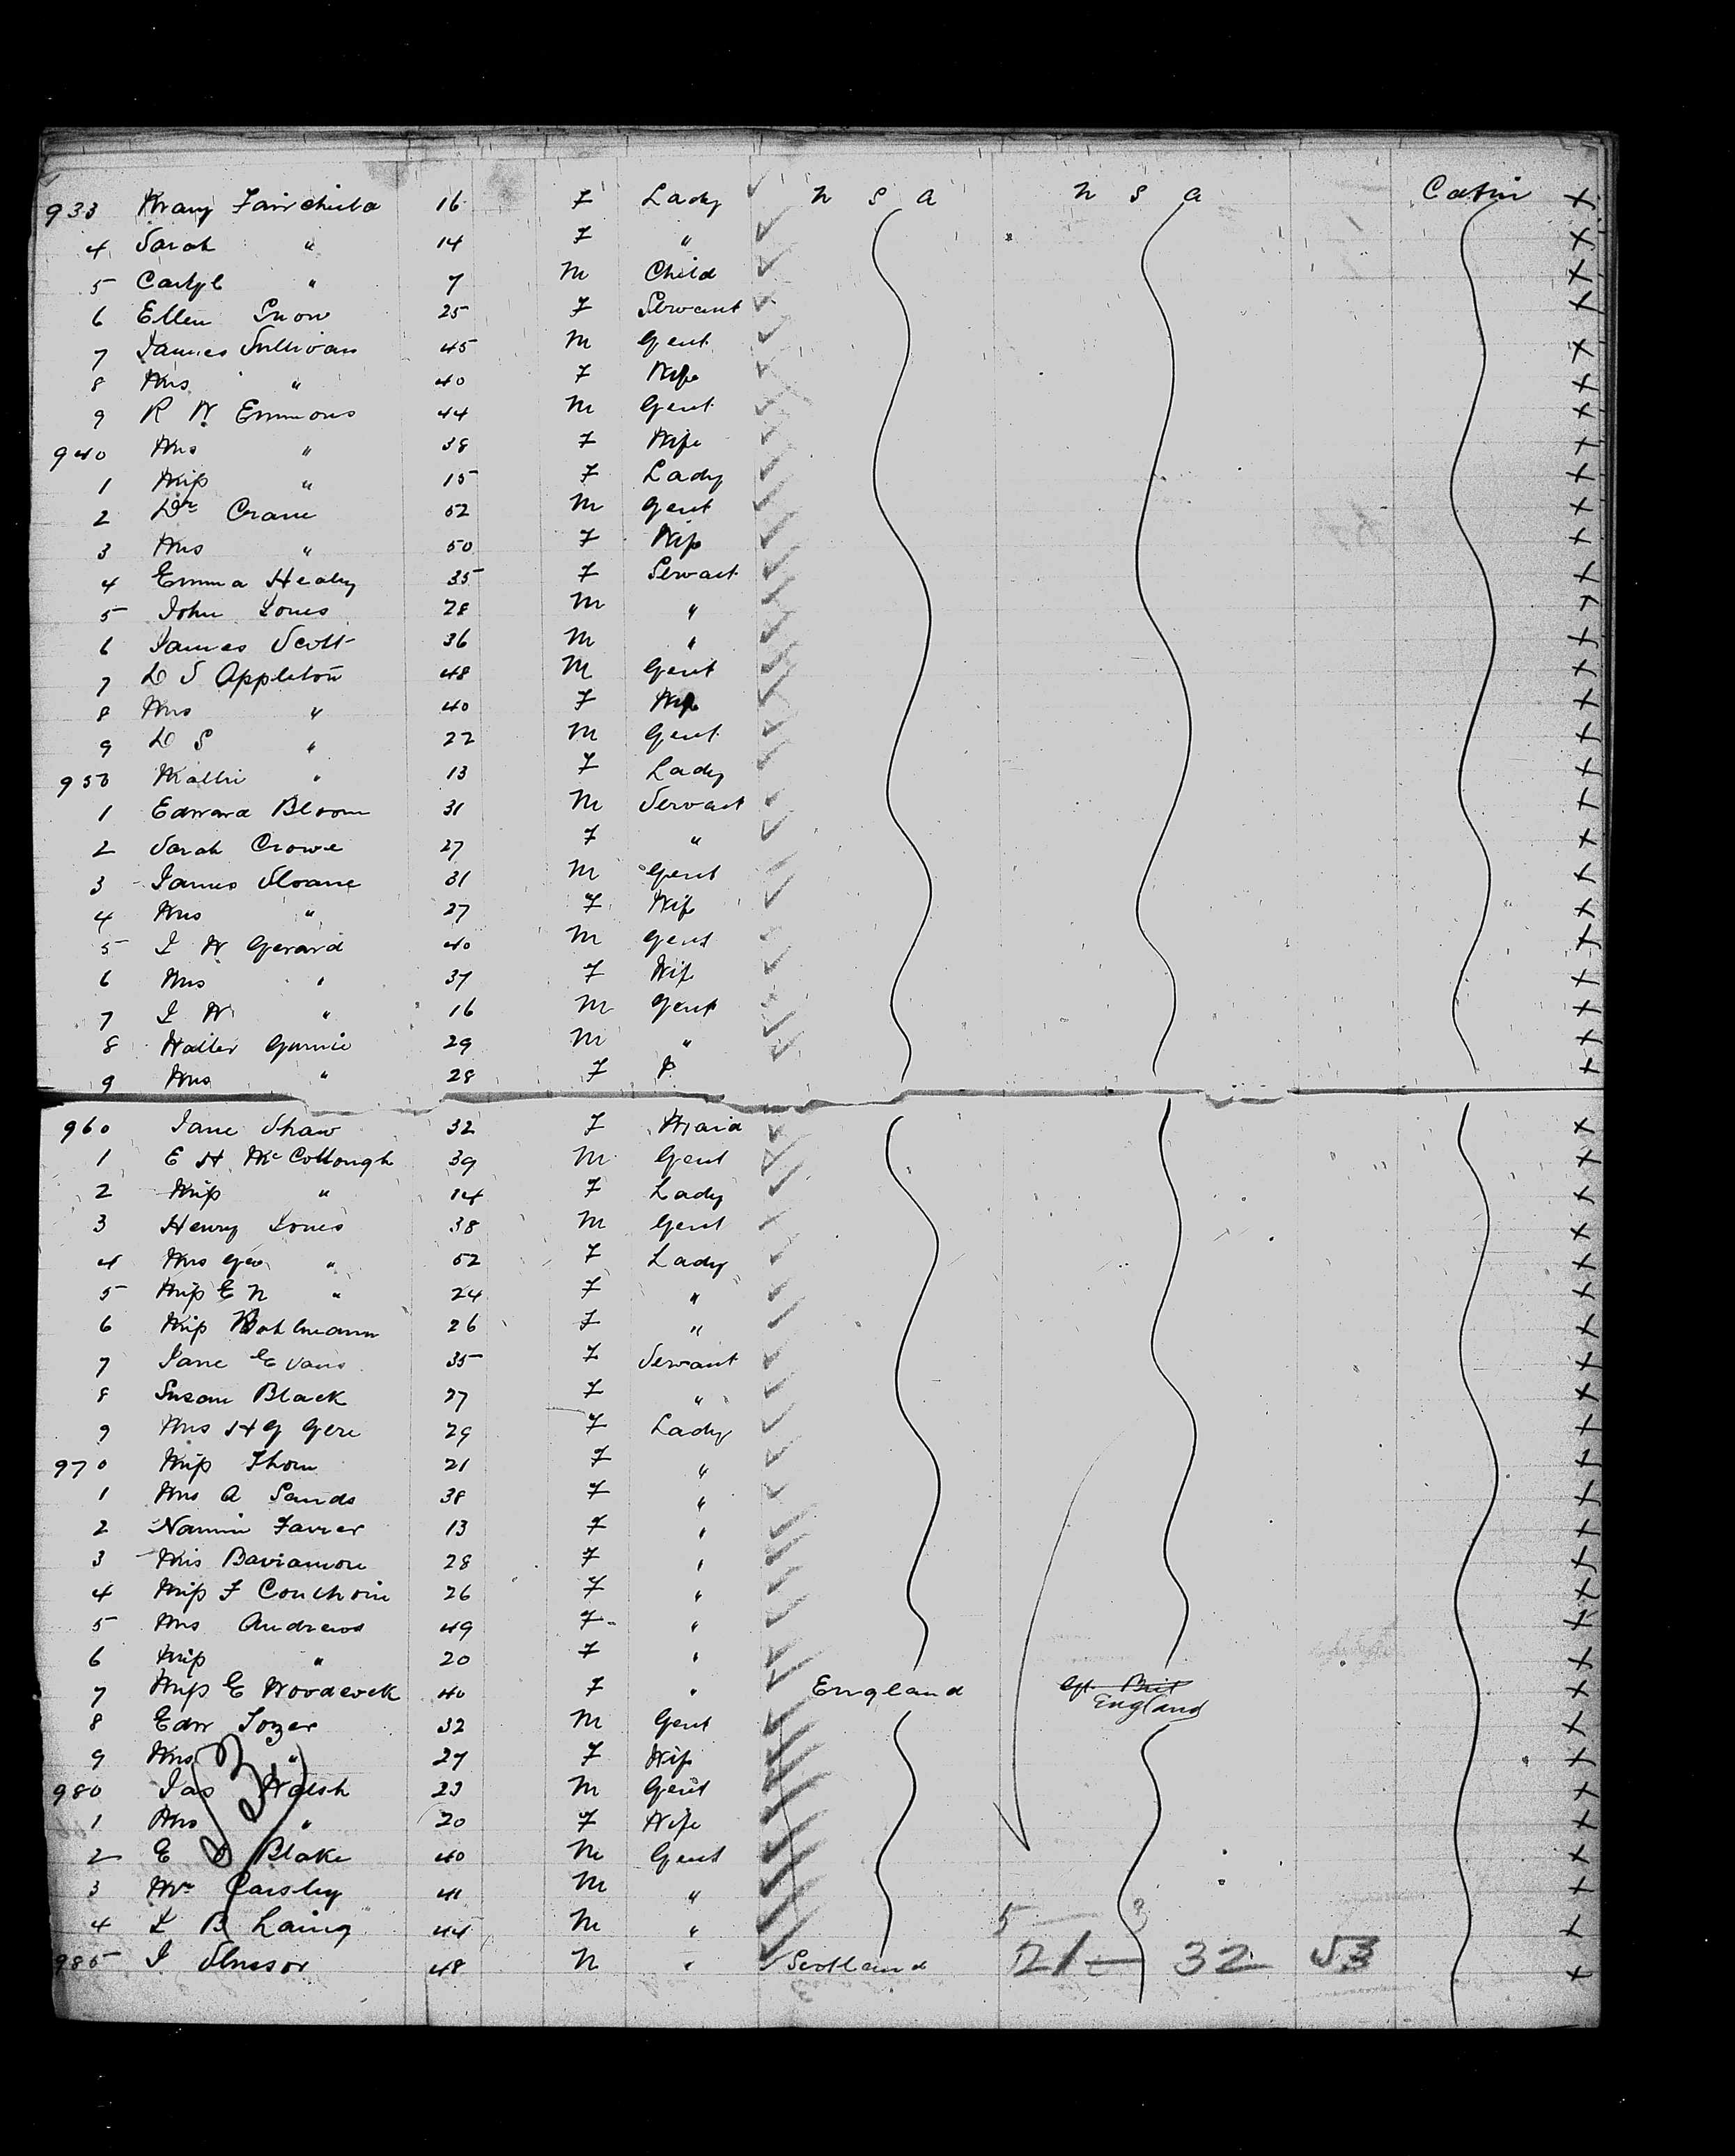 933 Mary Fairchild 16 F Lady U S A U S A Cabin X
4 Sarah " 14 F " X
5 Carlyle " 7 M Child X
6 Ellen Snow 25 F Servant X
7 James Sullivan 45 M Gent X
8 Mrs " 40 F Wife X
9 R W Emmons 44 M Gent X
940 Mrs " 38 F Wife X
1 Miss " 15 F Lady X
2 Dr Crane 52 M Gent X
3 Mrs " 50 F Wife X
4 Emma Healey 35 F Servant X
5 John Jones 28 M " X
6 James Scott 36 M " X
7 D S Appleton 48 M Gent X
8 Mrs " 40 F Wife X
9 D S " 22 M Gent X
950 " 13 F Lady X
1 Edward Bloom 31 M Servant X
2 Sarah Crowe 27 F " X
3 James Sloane 31 M Gent X
4 Mrs " 27 F Wife X
5 J W Gerard 40 M Gent X
6 Mrs " 37 F Wife X
7 J W " 16 M Gent X
8 Walter 29 M " X
9 Mrs " 28 F X
960 Jane Shaw 32 F Maid X
1 E H McCollough 39 M Gent X
2 Miss " 14 F Lady X
3 Henry Jones 38 M Gent X
4 Mrs Geo " 52 F Lady X
5 Miss E N " 24 F " X
6 Miss 26 F " X
7 Jane Evans 35 F Servant X
8 Susan Black 27 F " X
9 Mrs H G Gere 29 F Lady X
970 Miss Thorn 21 F " X
1 Mrs A Sands 38 F " X
2 Nannie 13 F " X
3 28 F " X
4 Miss F 26 F " X
5 Mrs Andrews 49 F " X
6 Miss " 20 F " X
7 Miss E Woodcock 40 F " England Gt Brit England X
8 Edw Tozer 32 M Gent X
9 Mrs " 27 F Wife X
980 Jas Walsh 23 M Gent X
1 Mrs " 20 F Wife X
2 E Blake 40 M Gent X
3 Mr Carsley 41 M " X
4 B Laing 44 M " 5 3 X
985 J 48 M " Scotland 21 32 53 X